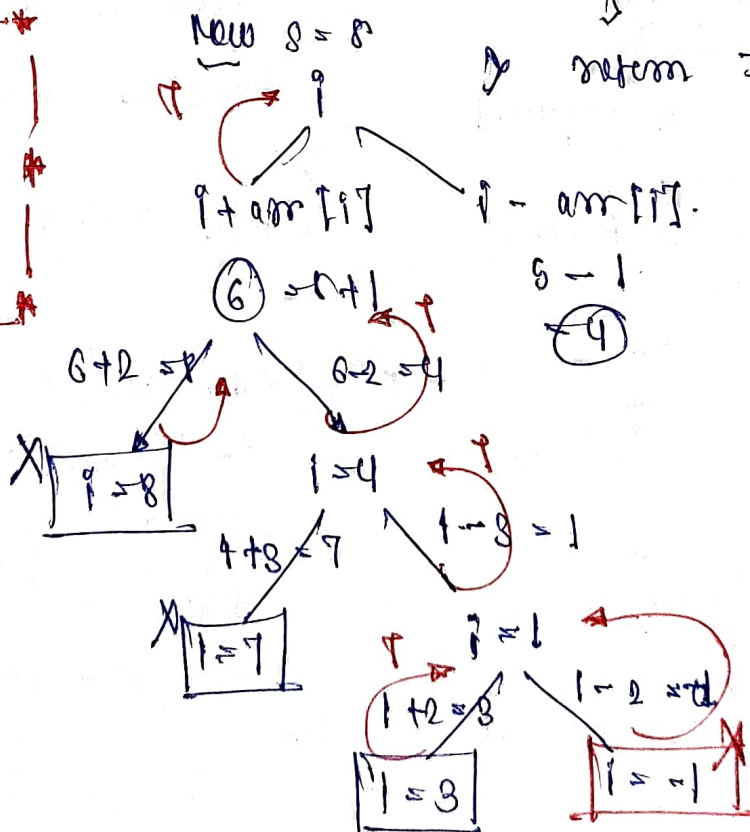 Now s = 8
return
T
i
i + arr[i]
i - arr[i].
6 = n+1
5 - 1
= 4
T
6+2 = 8
6-2 = 4
X
i = 8
i = 4
T
4+3 = 7
4 - 3 = 1
X
i = 7
i = 1
T
1+2 = 3
1 - 2 = -1
X
i = 3
i = -1